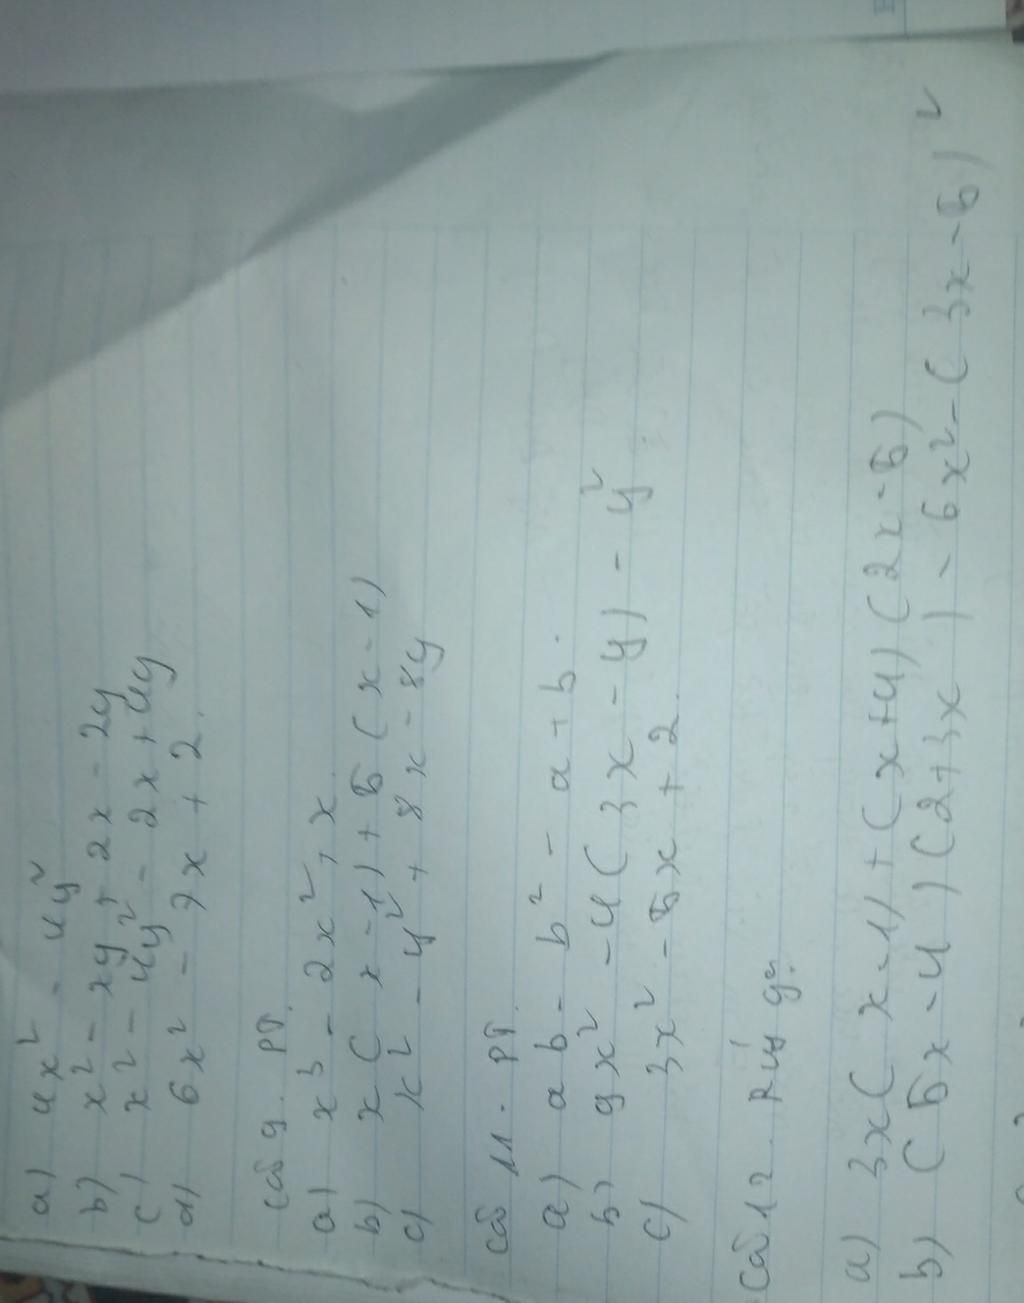 a) 4x² - 4y²
b) x² - xy + 2x - 2y
c) x² - 4y² - 2x + 4y
d) 6x² - 7x + 2.
Câu 9. PT.
a) x³ - 2x² + x
b) x(x-1) + 5(x-1)
c) x² - y² + 8x - 8y
Câu 11. PT.
a) ab - b² - a + b.
b) 9x² - 4(3x - y) - y²
c) 3x² - 5x + 2.
Câu 12. Rút gọn.
a) 3x(x-1) + (x+4)(2x-5)
b) (5x-4)(2+3x) - 6x² - (3x-5)²